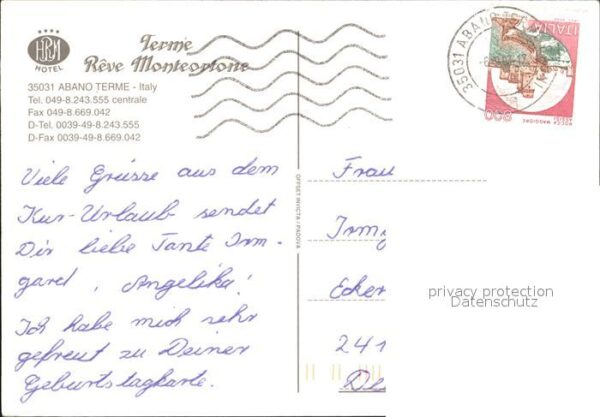 HRM
HOTEL
Terme
Rêve Monteortone
35031 ABANO TERME - Italy
Tel. 049-8.243.555 centrale
Fax 049-8.669.042
D-Tel. 0039-49-8.243.555
D-Fax 0039-49-8.669.042
Viele Grüsse aus dem
Kur-Urlaub sendet
Dir liebe Tante Irm-
gard, Angelika!
Ich habe mich sehr
gefreut zu Deiner
Geburtstagkarte.
OFFSET INVICTA / PADOVA
35031 ABANO
ITALIA
800
ROCCA MAGGIORE
Frau
Irmg
Ecker
241
De
privacy protection
Datenschutz